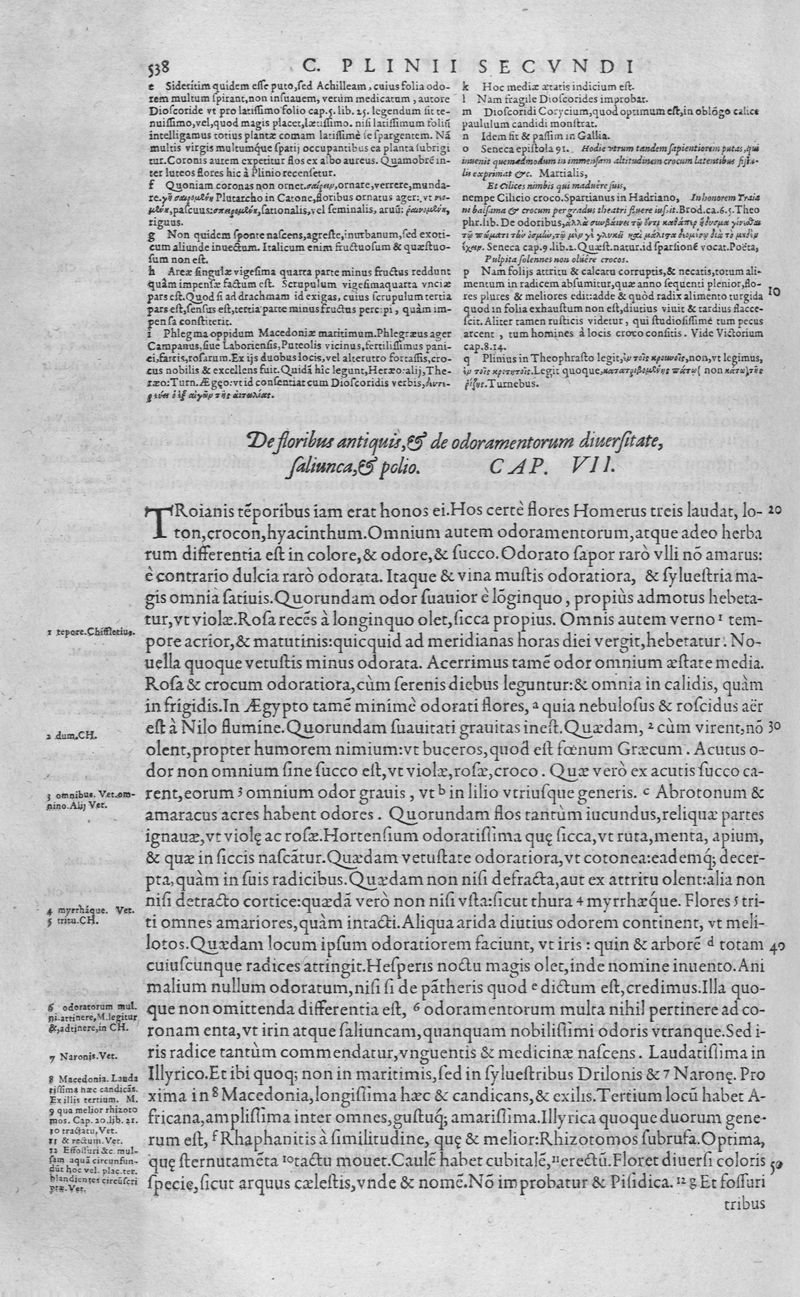 538
C. PLINII SECVNDI
e Sideritim quidem esse puto, sed Achilleam, cuius folia odo-
rem multum spirant, non insuauem, verùm medicatum, autore
Dioscoride vt pro latissimo folio cap. 5. lib. 25. legendum sit te-
nuissimo, vel, quod magis placet, lætissimo. nisi latissimum folijs
intelligamus totius plantæ comam latissimè se spargentem. Nā
multis virgis multumq́ue spatij occupantibus ea planta subrigi
tur. Coronis autem expetitur flos ex albo aureus. Quamobrē in-
ter luteos flores hic à Plinio recensetur.
f Quoniam coronas non ornet. ornare, verrere, munda-
re. Plutarcho in Catone, floribus ornatus ager:
pascuus: sationalis, vel seminalis, aruū:
riguus.
g Non quidem sponte nascens, agreste, inurbanum, sed exoti-
cum aliunde inuectum. Italicum enim fructuosum & quæstuo-
sum non est.
h Areæ singulæ vigesima quarta parte minus fructus reddunt
quàm impensæ factum est. Scrupulum vigesimaquarta vnciæ
pars est. Quod si ad drachmam id exigas, cuius scrupulum tertia
pars est, sensus est, tertia parte minus fructus percipi, quàm im-
pensa constiterit.
i Phlegma oppidum Macedoniæ maritimum. Phlegræus ager
Campanus, siue Laboriensis, Puteolis vicinus, fertilissimus pani-
ci, farris, rosarum. Ex ijs duobus locis, vel alterutro fortassis, cro-
cus nobilis & excellens fuit. Quidā hic legunt, Heræo: alij, The-
ræo: Turn. Ægeo: vt id consentiat cum Dioscoridis verbis,
k Hoc mediæ ætatis indicium est.
l Nam fragile Dioscorides improbat.
m Dioscoridi Corycium, quod optimum est, in oblōgo calice
paululum candidi monstrat.
n Idem fit & passim in Gallia.
o Seneca epistola 91. Hodie vtrum tandem sapientiorem putas, qui
inuenit quemadmodum in immensam altitudinem crocum latentibus fistu-
lis exprimat &c. Martialis,
Et Cilices nimbis qui maduêre suis,
nempe Cilicio croco. Spartianus in Hadriano, In honorem Traia
ni balsama & crocum per gradus theatri fluere iussit. Brod. ca. 6. 5. Theo
phr. lib. De odoribus,
Seneca cap. 9. lib. 2. Quæst. natur. id sparsionē vocat. Poëta,
Pulpita solennes non oluêre crocos.
p Nam folijs attritu & calcatu corruptis, & necatis, totum ali-
mentum in radicem absumitur, quæ anno sequenti plenior, flo-
res plures & meliores edit: adde & quòd radix alimento turgida
quod in folia exhaustum non est, diutius viuit & tardius flacce-
scit. Aliter tamen rusticis videtur, qui studiosissimè tum pecus
arcent, tum homines à locis croco consitis. Vide Victorium
cap. 8. 14.
q Plinius in Theophrasto legit, non, vt legimus,
Legit quoque, non
Turnebus.
10
De floribus antiquis, & de odoramentorum diuersitate,
saliunca, & polio. CAP. VII.
TRoianis tēporibus iam erat honos ei. Hos certè flores Homerus treis laudat, lo- 20
ton, crocon, hyacinthum. Omnium autem odoramentorum, atque adeo herba
rum differentia est in colore, & odore, & succo. Odorato sapor rarò vlli nō amarus:
è contrario dulcia rarò odorata. Itaque & vina mustis odoratiora, & syluestria ma-
gis omnia satiuis. Quorundam odor suauior è lōginquo, propiùs admotus hebeta-
tur, vt violæ. Rosa recēs à longinquo olet, sicca propius. Omnis autem verno 1 tem-
pore acrior, & matutinis: quicquid ad meridianas horas diei vergit, hebetatur. No-
uella quoque vetustis minus odorata. Acerrimus tamē odor omnium æstate media.
Rosa & crocum odoratiora, cùm serenis diebus leguntur: & omnia in calidis, quàm
in frigidis. In Ægypto tamē minimè odorati flores, a quia nebulosus & roscidus aër
est à Nilo flumine. Quorundam suauitati grauitas inest. Quædam, 2 cùm virent, nō 30
olent, propter humorem nimium: vt buceros, quod est fœnum Græcum. Acutus o-
dor non omnium sine succo est, vt violæ, rosæ, croco. Quæ verò ex acutis succo ca-
rent, eorum 3 omnium odor grauis, vt b in lilio vtriusque generis. c Abrotonum &
amaracus acres habent odores. Quorundam flos tantùm iucundus, reliquæ partes
ignauæ, vt violę ac rosæ. Hortensium odoratissima quę sicca, vt ruta, menta, apium,
& quæ in siccis nascūtur. Quædam vetustate odoratiora, vt cotonea: eademq; decer-
pta, quàm in suis radicibus. Quædam non nisi defracta, aut ex attritu olent: alia non
nisi detracto cortice: quædā verò non nisi vsta: sicut thura 4 myrrhæq́ue. Flores 5 tri-
ti omnes amariores, quàm intacti. Aliqua arida diutius odorem continent, vt meli-
lotos. Quædam locum ipsum odoratiorem faciunt, vt iris: quin & arborē d totam 40
cuiuscunque radices attingit. Hesperis noctu magis olet, inde nomine inuento. Ani
malium nullum odoratum, nisi si de pātheris quod e dictum est, credimus. Illa quo-
que non omittenda differentia est, 6 odoramentorum multa nihil pertinere ad co-
ronamenta, vt irin atque saliuncam, quanquam nobilissimi odoris vtranque. Sed i-
ris radice tantùm commendatur, vnguentis & medicinæ nascens. Laudatissima in
Illyrico. Et ibi quoq; non in maritimis, sed in syluestribus Drilonis & 7 Naronę. Pro
xima in 8 Macedonia, longissima hæc & candicans, & exilis. Tertium locū habet A-
fricana, amplissima inter omnes, gustuq; amarissima. Illyrica quoque duorum gene-
rum est, f Rhaphanitis à similitudine, quę & melior: Rhizotomos subrufa. Optima,
quę sternutamēta 10 tactu mouet. Caulē habet cubitalē, 11 erectū. Floret diuersi coloris 50
specie, sicut arquus cælestis, vnde & nomē. Nō improbatur & Pisidica. 12 g Et fossuri
tribus
1 tepore. Chiffletius.
2 dum. CH.
3 omnibus. Vet. om-
nino. Alij Vet.
4 myrrháque. Vet.
5 tritu. CH.
6 odoratorum mul.
ni. attinere, M. legitur
&, adtinere, in CH.
7 Naronis. Vet.
8 Macedonia. Lauda
tissima hæc candicās.
Ex illis tertium. M.
9 qua melior rhizoto
mos. Cap. 20. lib. 21.
10 tractatu, Vet.
11 & rectum. Vet.
12 Effossuri &c. mul-
sam aquā circunfun-
dūt hoc vel. plac. ter.
blandientes circūscri
ptæ. Vet.